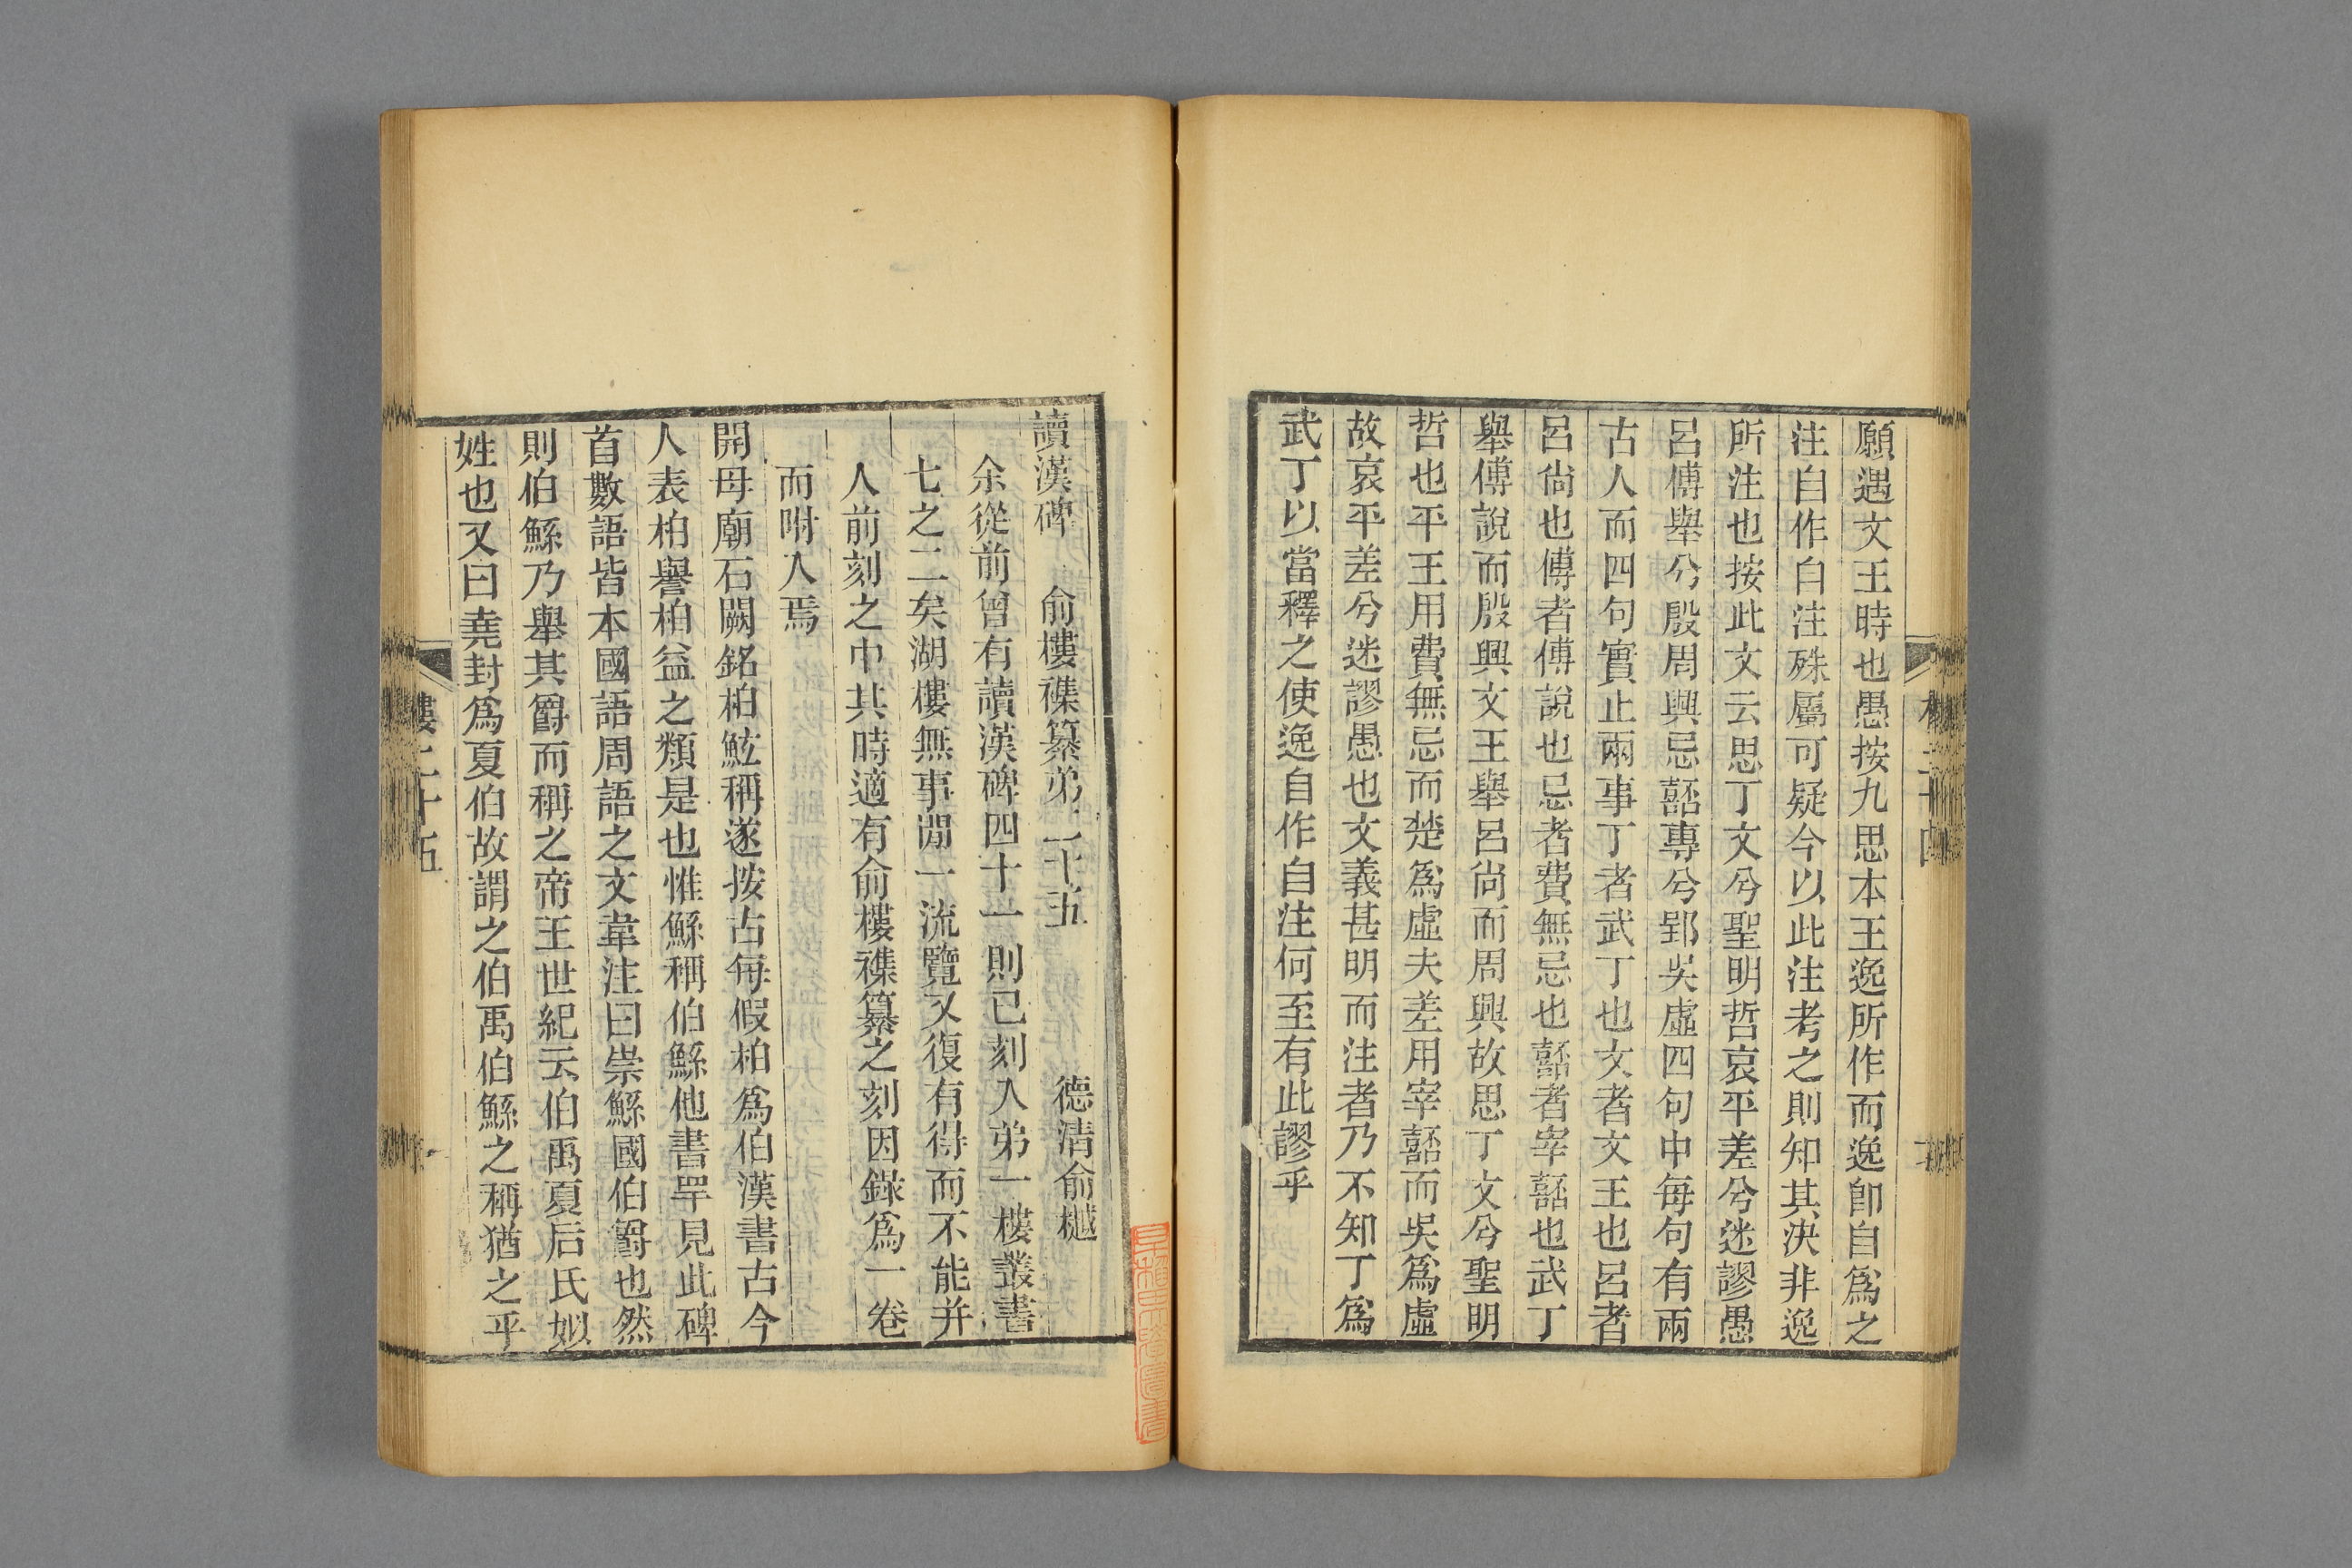 願遇文王時也愚按九思本王逸所作而逸卽自爲之
注自作自注殊屬可疑今以此注考之則知其決非逸
所注也按此文云思丁文兮聖明哲哀平差兮迷謬愚
呂傅舉兮殷周興忌嚭專兮郢吳虛四句中每句有兩
古人而四句實止兩事丁者武丁也文者文王也呂者
呂尙也傅者傅說也忌者費無忌也嚭者宰嚭也武丁
舉傅說而殷興文王舉呂尙而周興故思丁文兮聖明
哲也平王用費無忌而楚爲虛夫差用宰嚭而吳爲虛
故哀平差兮迷謬愚也文義甚明而注者乃不知丁爲
武丁以當釋之使逸自作自注何至有此謬乎
讀漢碑 俞樓襍纂弟二十五 德清俞樾
余從前曾有讀漢碑四十一則已刻入弟一樓叢書
七之二矣湖樓無事閒一流覽又復有得而不能并
人前刻之中其時適有俞樓襍纂之刻因錄爲一卷
而附入焉
開母廟石闕銘柏鮌稱遂按古每假柏爲伯漢書古今
人表柏譽柏益之類是也惟鯀稱伯鯀他書罕見此碑
首數語皆本國語周語之文韋注曰崇鯀國伯爵也然
則伯鯀乃舉其爵而稱之帝王世紀云伯禹夏后氏姒
姓也又曰堯封爲夏伯故謂之伯禹伯鯀之稱猶之乎
樓二十五